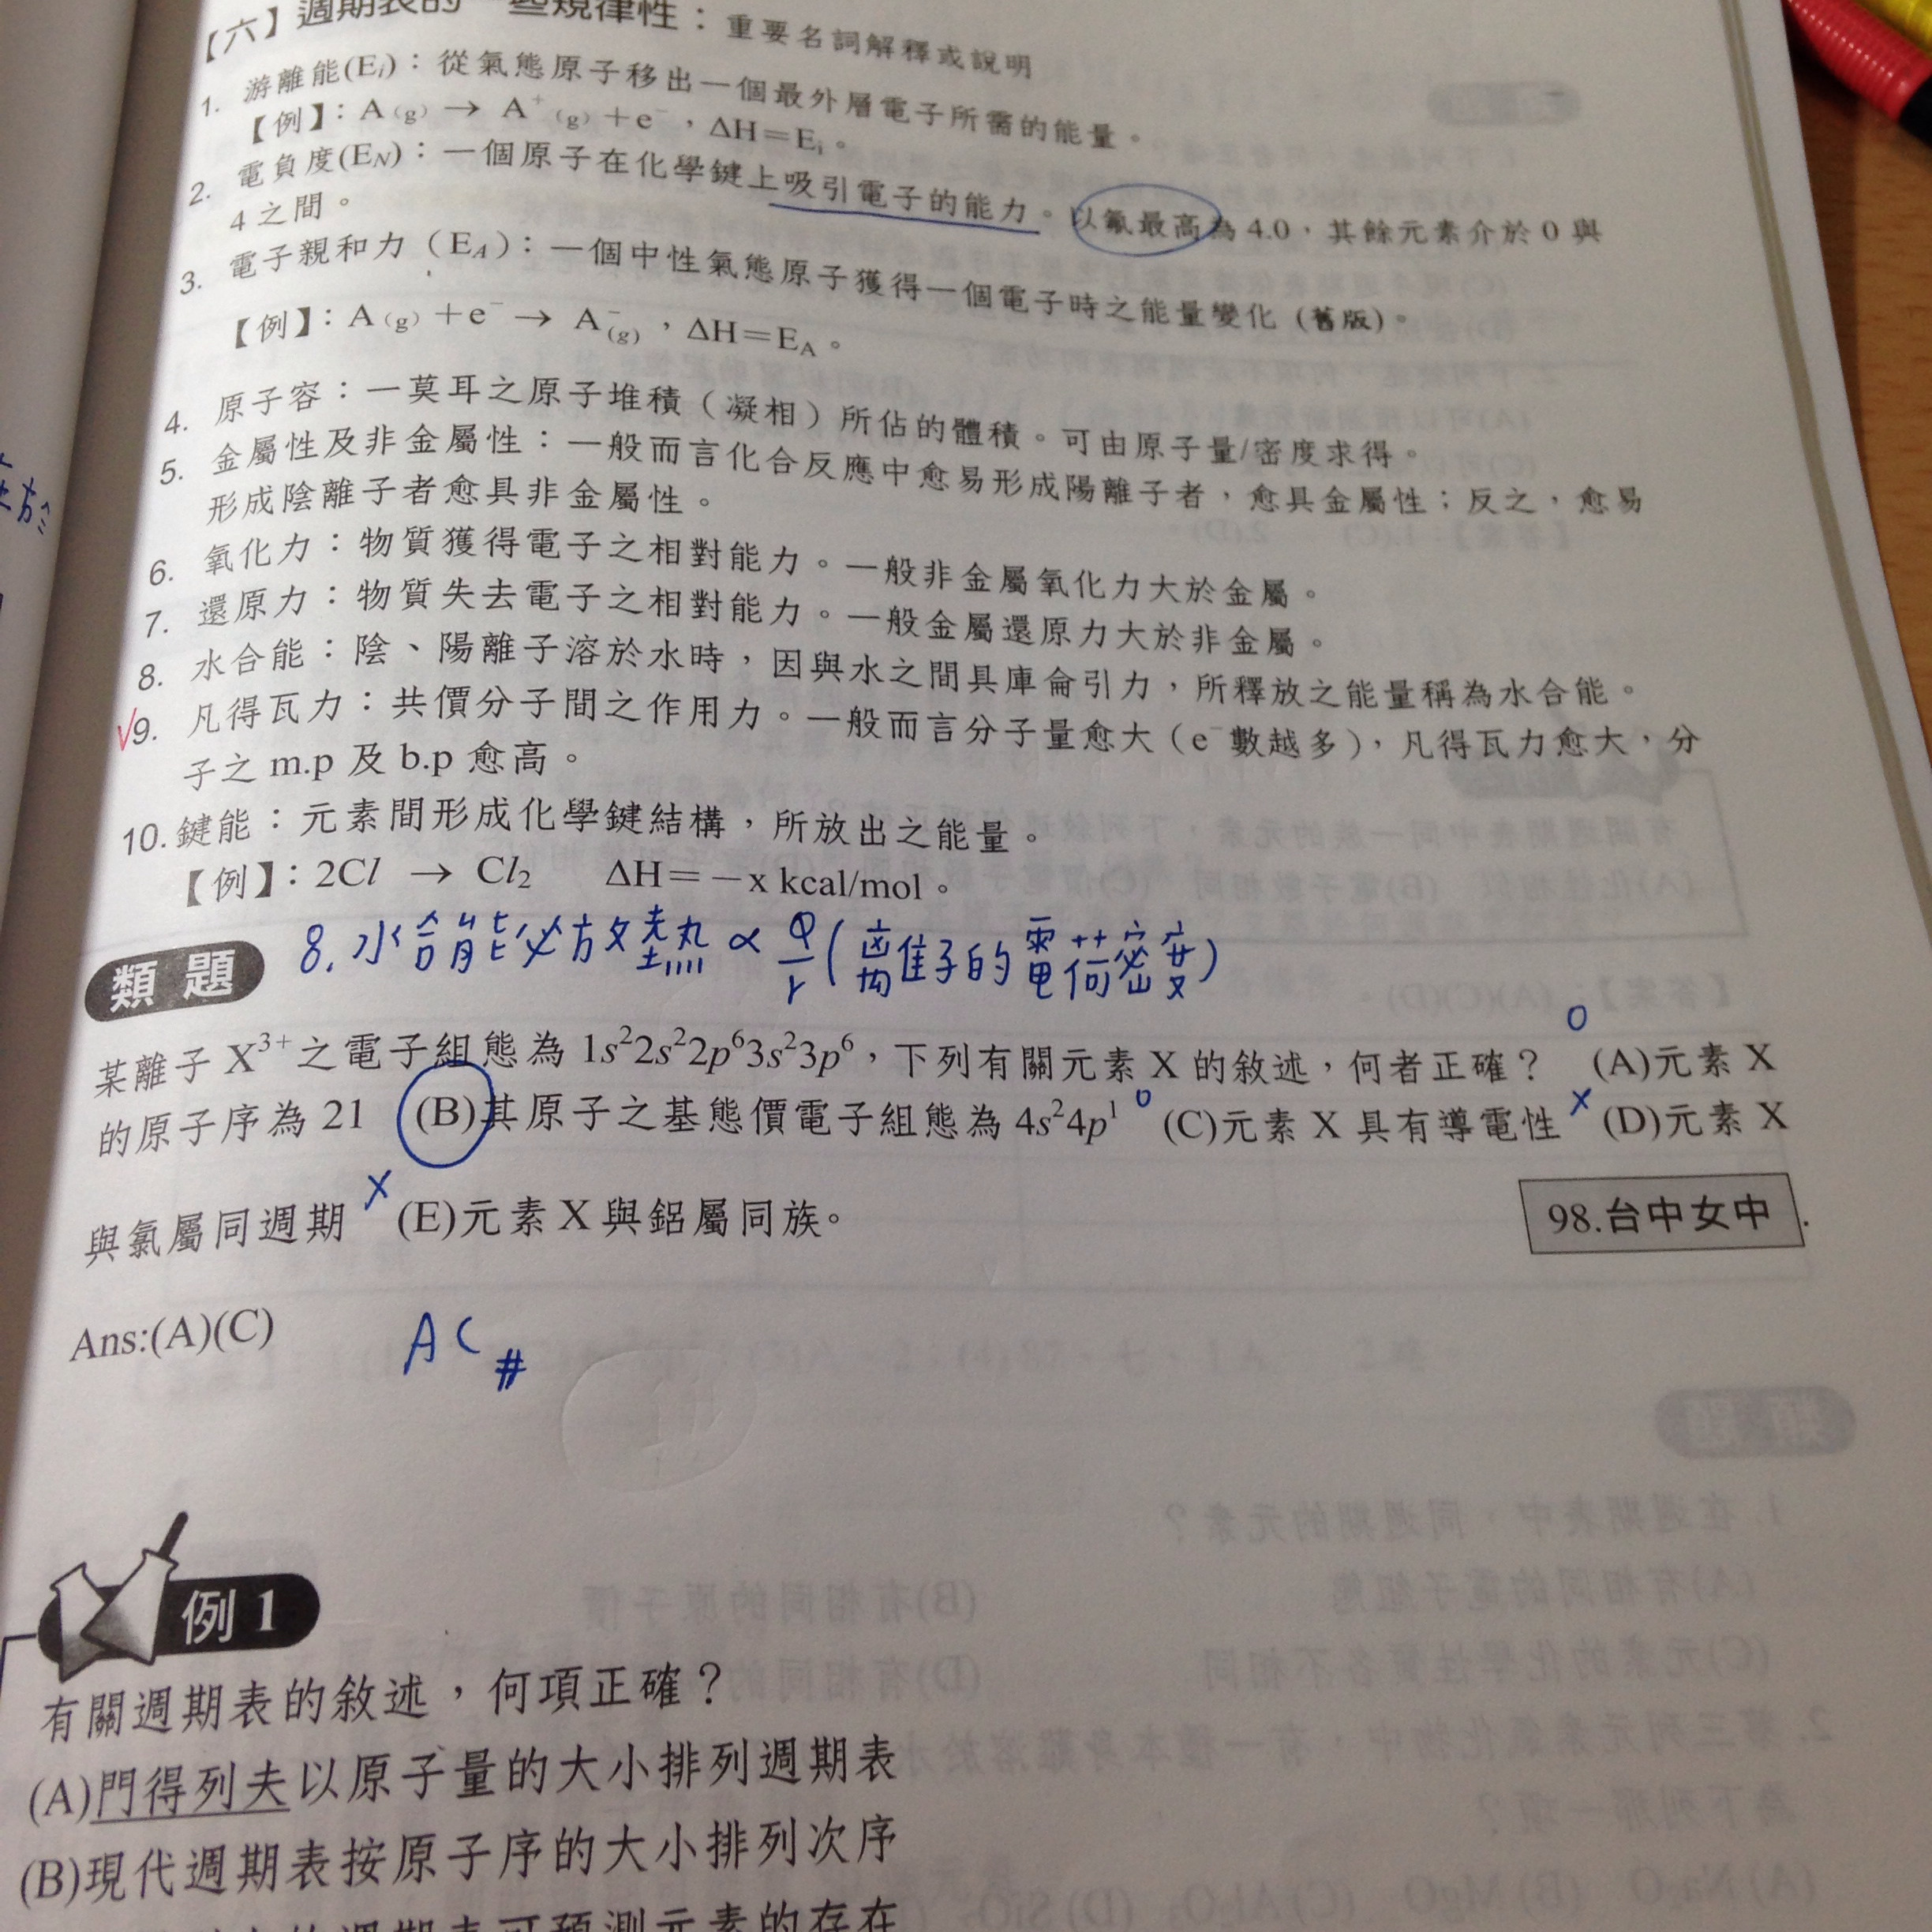 【六】週期表的一些規律性：重要名詞解釋或說明
1. 游離能(Ei)：從氣態原子移出一個最外層電子所需的能量。
【例】：A(g) → A⁺(g)＋e⁻，ΔH＝Ei。
2. 電負度(EN)：一個原子在化學鍵上吸引電子的能力。以氟最高為 4.0，其餘元素介於 0 與
4 之間。
3. 電子親和力（EA）：一個中性氣態原子獲得一個電子時之能量變化（舊版）。
【例】：A(g)＋e⁻→ A⁻(g)，ΔH＝EA。
4. 原子容：一莫耳之原子堆積（凝相）所佔的體積。可由原子量/密度求得。
5. 金屬性及非金屬性：一般而言化合反應中愈易形成陽離子者，愈具金屬性；反之，愈易
形成陰離子者愈具非金屬性。
6. 氧化力：物質獲得電子之相對能力。一般非金屬氧化力大於金屬。
7. 還原力：物質失去電子之相對能力。一般金屬還原力大於非金屬。
8. 水合能：陰、陽離子溶於水時，因與水之間具庫侖引力，所釋放之能量稱為水合能。
√9. 凡得瓦力：共價分子間之作用力。一般而言分子量愈大（e⁻數越多），凡得瓦力愈大，分
子之 m.p 及 b.p 愈高。
10. 鍵能：元素間形成化學鍵結構，所放出之能量。
【例】：2Cl → Cl₂ ΔH＝－x kcal/mol。
8. 水合能必放熱 ∝ Q/r (離子的電荷密度)
類題
某離子 X³⁺之電子組態為 1s²2s²2p⁶3s²3p⁶，下列有關元素 X 的敘述，何者正確？ o (A)元素 X
的原子序為 21 (B)其原子之基態價電子組態為 4s²4p¹ o (C)元素 X 具有導電性 x (D)元素 X
與氯屬同週期 x (E)元素 X 與鋁屬同族。
98.台中女中
Ans:(A)(C) AC#
例 1
有關週期表的敘述，何項正確？
(A)門得列夫以原子量的大小排列週期表
(B)現代週期表按原子序的大小排列次序
週期表可預測元素的存在